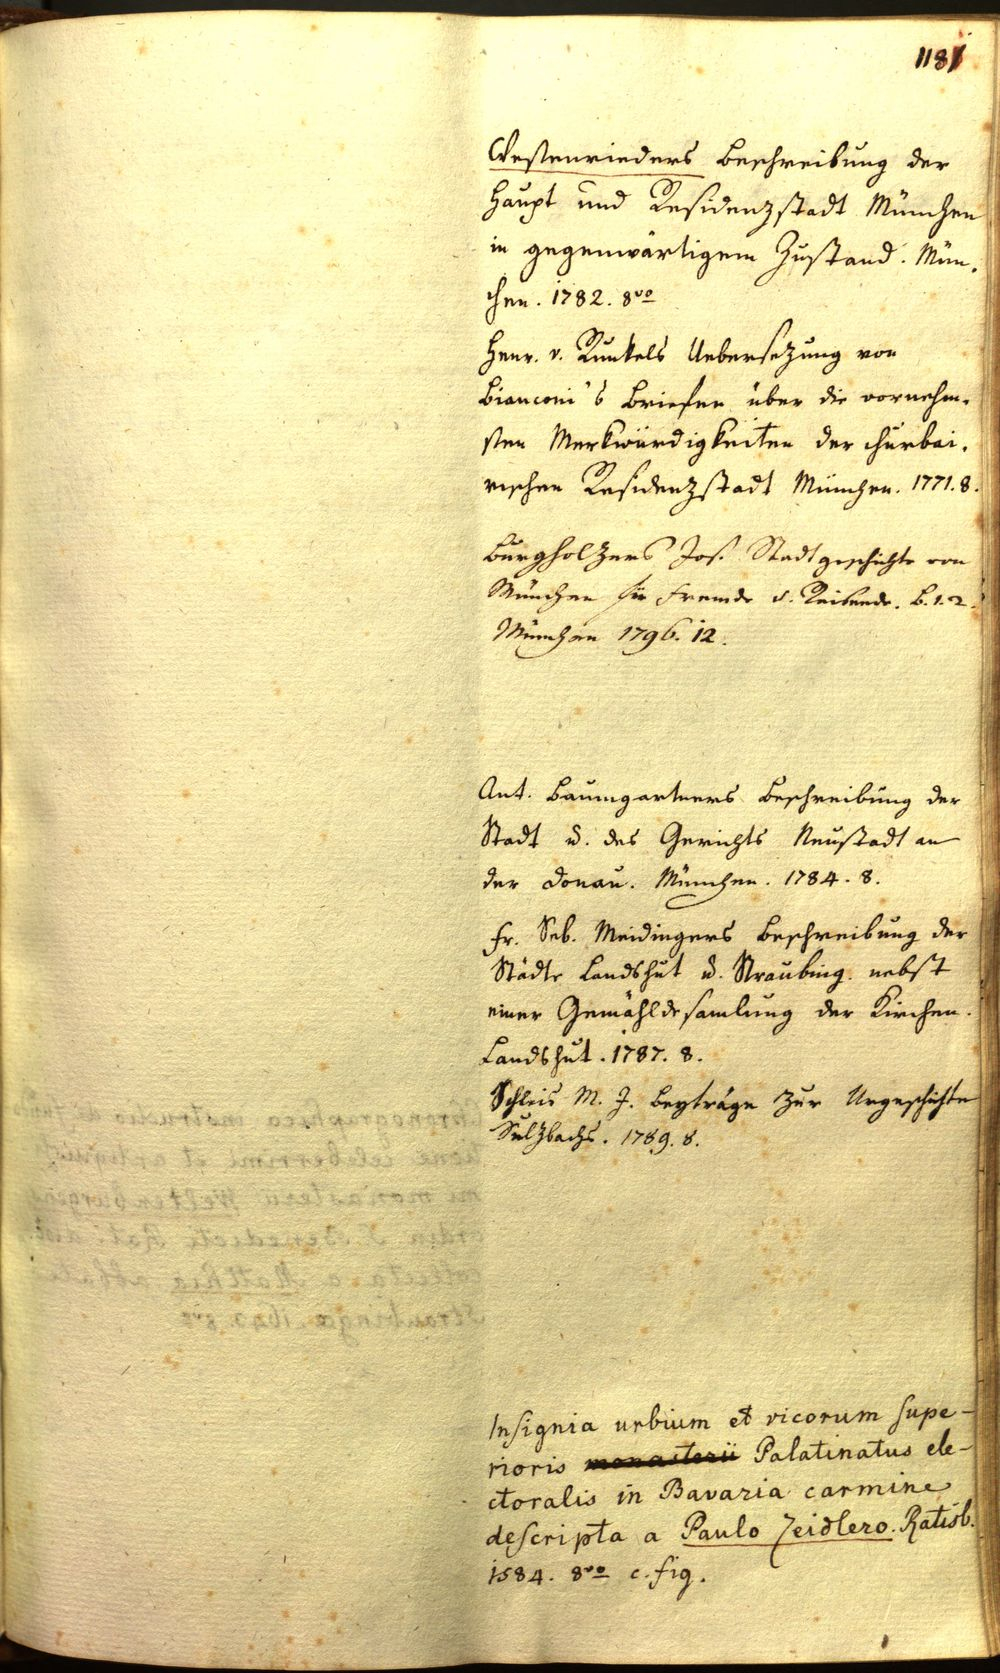 118
Westenrieders Beschreibung der
Haupt und Residenzstadt München
in gegenwärtigem Zustand. Mün-
chen. 1782. 8vo
Henr. v. Runkels Uebersetzung von
Bianconi's Briefen über die vornehm-
sten Merkwürdigkeiten der churbai-
rischen Residenzstadt München. 1771. 8.
Burgholzers Jos. Stadtgeschichte von
München für Fremde u. Reisende. B. 1. 2.
München 1796. 12.
Ant. Baumgartners Beschreibung der
Stadt u. des Gerichts Neustadt an
der Donau. München. 1784. 8.
Fr. Seb. Meidingers Beschreibung der
Städte Landshut u. Straubing. nebst
einer Gemähldesamlung der Kirchen.
Landshut. 1787. 8.
Schleis M. J. Beyträge zur Urgeschichte
Sulzbachs. 1789. 8.
Insignia urbium et vicorum supe-
rioris monasterii Palatinatus ele-
ctoralis in Bavaria carmine
descripta a Paulo Zeidlero. Ratisb.
1584. 8vo c. fig.